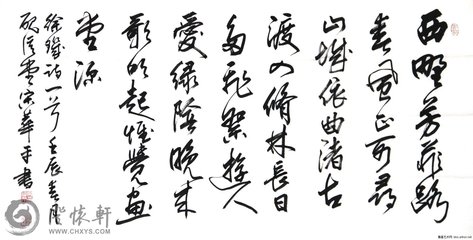 西野芳菲路
春風正可尋
山城依曲渚古
渡入脩林長日
多飛絮遊人
愛綠陰晚來
歌吹起惟覺畫
堂深
徐璣詩一首壬辰春月
堂宗華平書
懷軒
WWW.CHXYS.COM